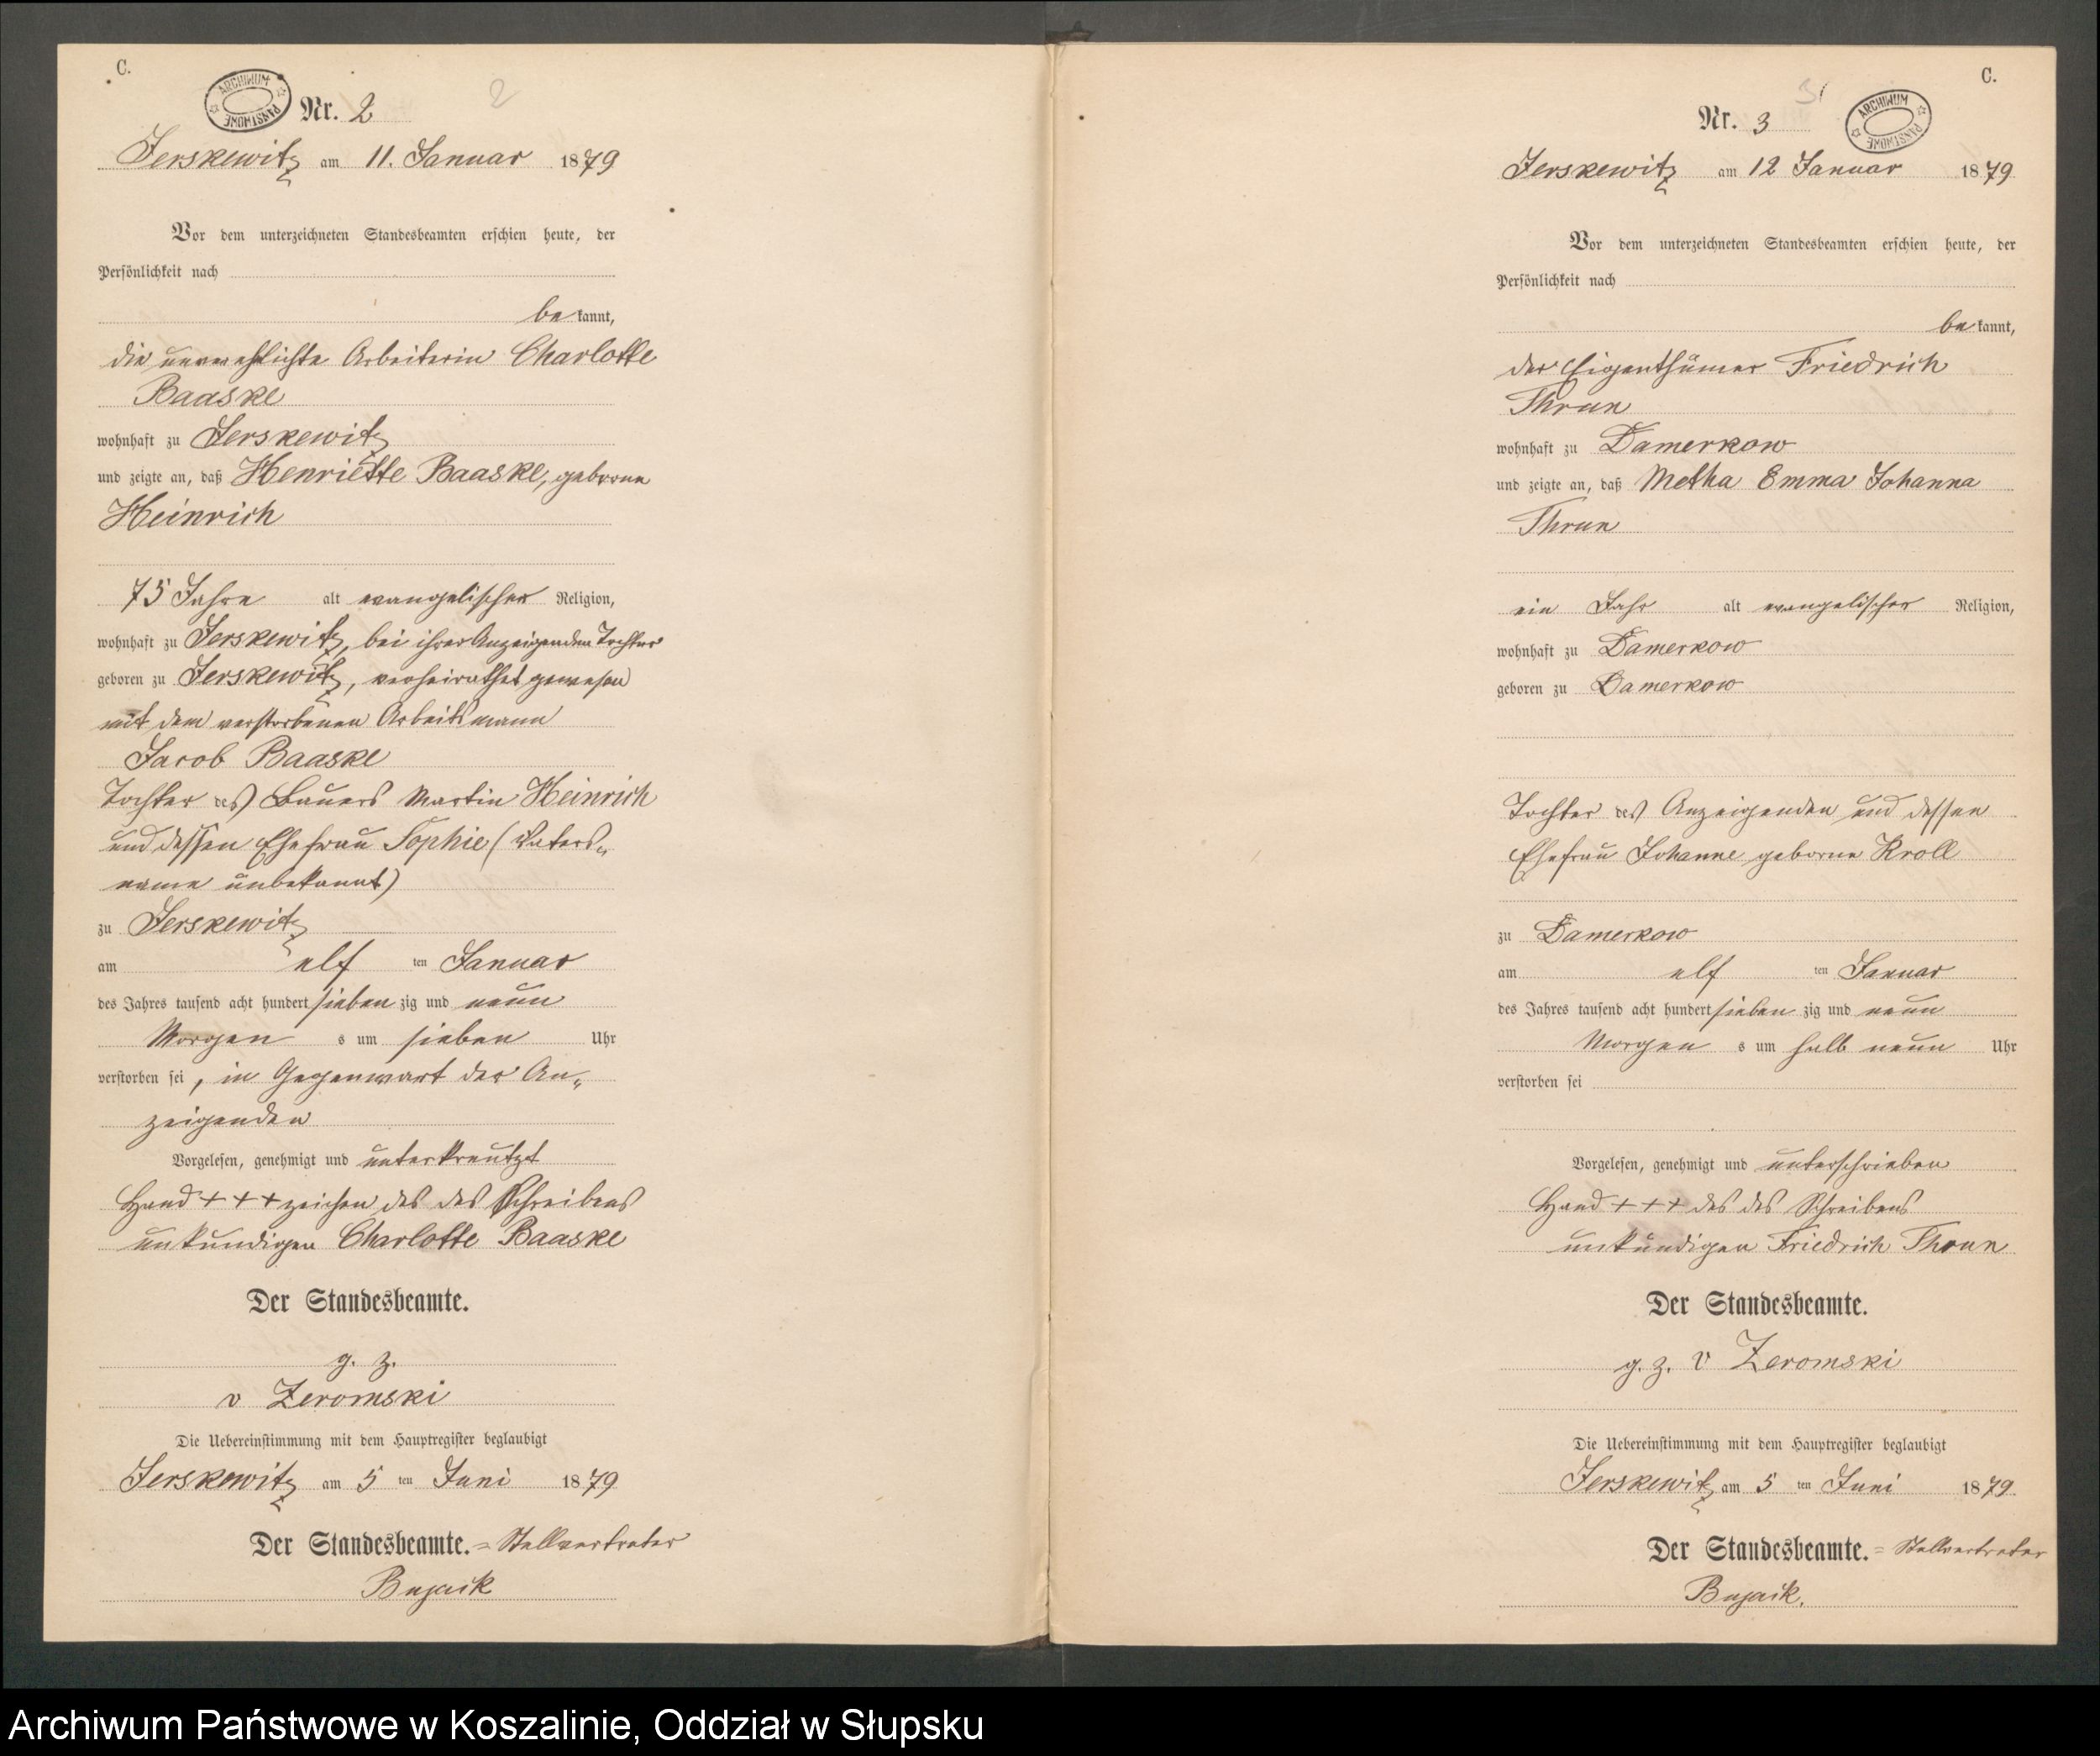 C.
ARCHIWUM PAŃSTWOWE
Nr. 2
2
Jerskewitz am 11. Januar 1879
Vor dem unterzeichneten Standesbeamten erschien heute, der
Persönlichkeit nach
be kannt,
die unverehlichte Arbeiterin Charlotte
Baaske
wohnhaft zu Jerskewitz
und zeigte an, daß Henriette Baaske, geborne
Heinrich
75 Jahre alt evangelischer Religion,
wohnhaft zu Jerskewitz, bei ihrer Anzeigenden Tochter
geboren zu Jerskewitz, verheirathet gewesen
mit dem verstorbenen Arbeitsmann
Jacob Baaske
Tochter des Bauers Martin Heinrich
und dessen Ehefrau Sophie (Vaters-
name unbekannt)
zu Jerskewitz
am elf ten Januar
des Jahres tausend acht hundert sieben zig und neun
Morgen s um sieben Uhr
verstorben sei, in Gegenwart der An-
zeigenden
Vorgelesen, genehmigt und unterkreutzt
Hand + + + zeichen des des Schreibens
unkundigen Charlotte Baaske
Der Standesbeamte.
g. z.
v Zeromski
Die Uebereinstimmung mit dem Hauptregister beglaubigt
Jerskewitz am 5 ten Juni 1879
Der Standesbeamte. = Stellvertreter
Bujack
C.
3
ARCHIWUM PAŃSTWOWE
Nr. 3
Jerskewitz am 12 Januar 1879
Vor dem unterzeichneten Standesbeamten erschien heute, der
Persönlichkeit nach
be kannt,
der Eigenthümer Friedrich
Thrun
wohnhaft zu Damerkow
und zeigte an, daß Metha Emma Johanna
Thrun
ein Jahr alt evangelischer Religion,
wohnhaft zu Damerkow
geboren zu Damerkow
Tochter des Anzeigenden und dessen
Ehefrau Johanne geborne Kroll
zu Damerkow
am elf ten Januar
des Jahres tausend acht hundert sieben zig und neun
Morgen s um halb neun Uhr
verstorben sei
Vorgelesen, genehmigt und unterschrieben
Hand + + + des des Schreibens
unkundigen Friedrich Thrun
Der Standesbeamte.
g. z. v Zeromski
Die Uebereinstimmung mit dem Hauptregister beglaubigt
Jerskewitz am 5 ten Juni 1879
Der Standesbeamte. = Stellvertreter
Bujack.
Archiwum Państwowe w Koszalinie, Oddział w Słupsku